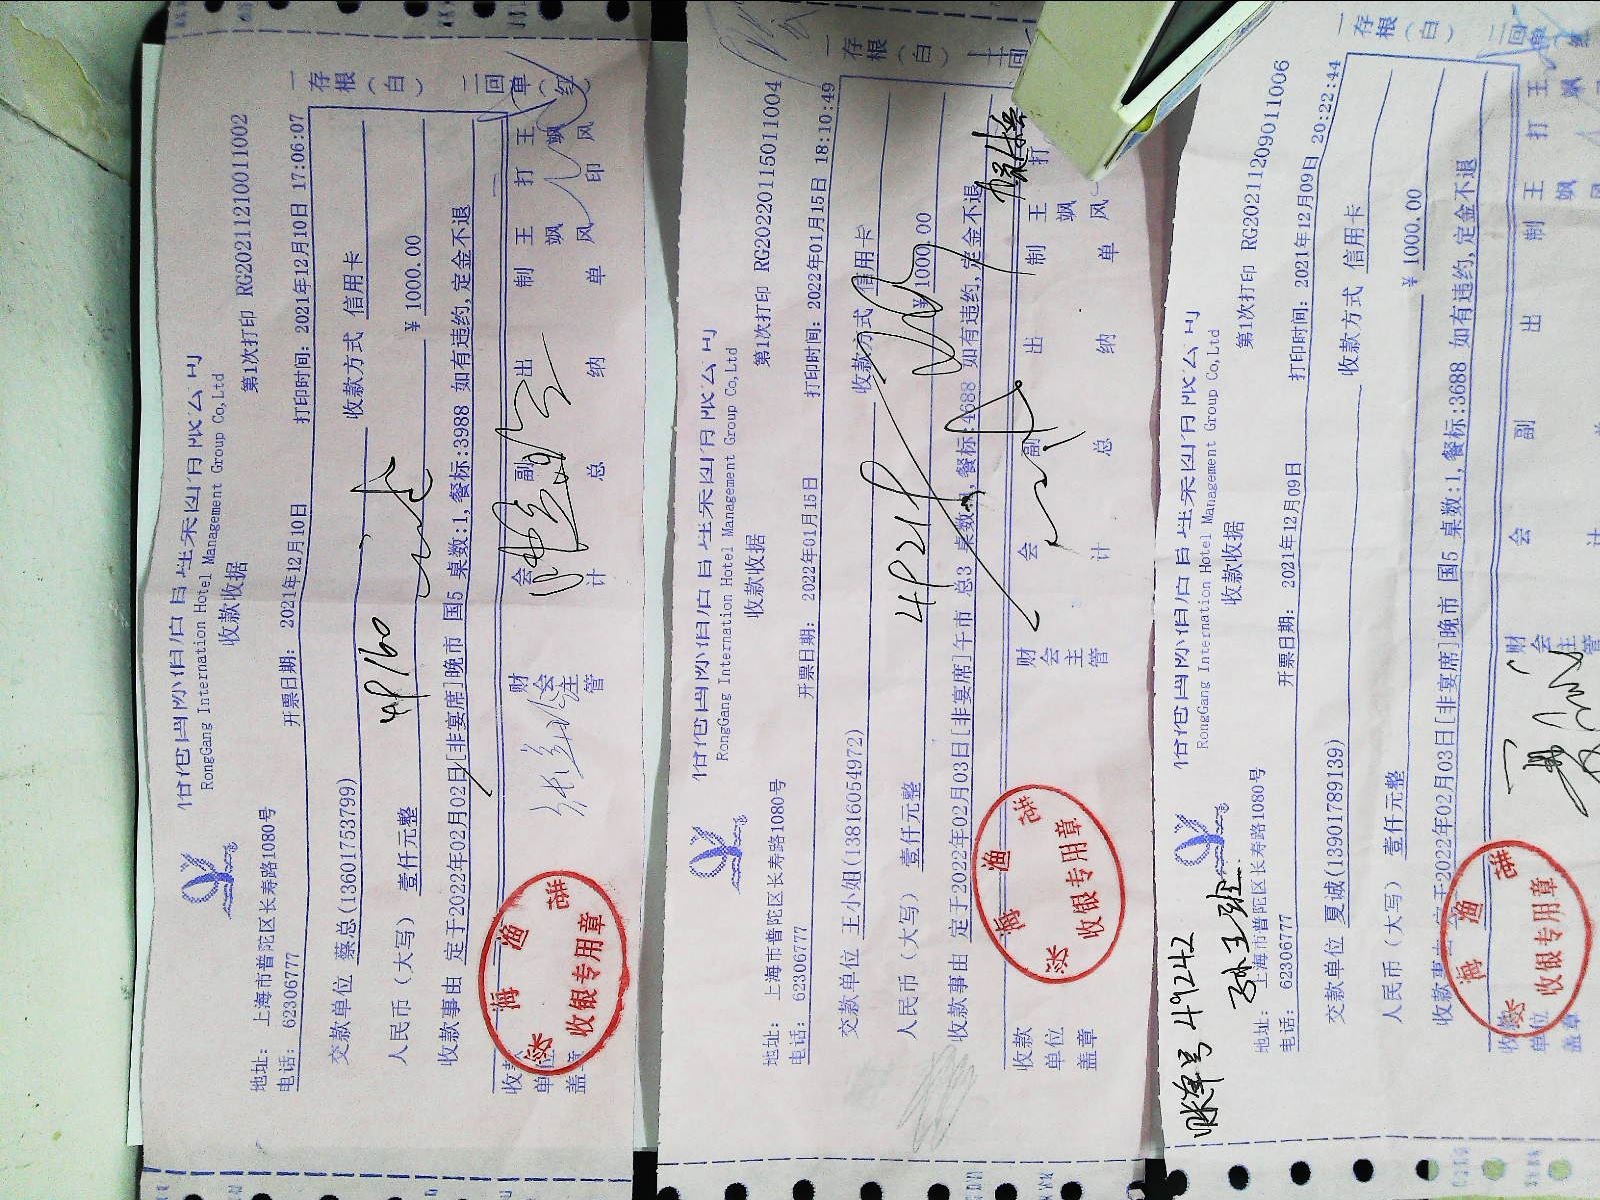 RongGang International Hotel Management Group Co,Ltd
收款收据
第1次打印 RG20211210011002
地址： 上海市普陀区长寿路1080号
电话： 62306777
开票日期： 2021年12月10日
打印时间：2021年12月10日 17:06:07
交款单位 蔡总(13601753799)
收款方式 信用卡
人民币（大写） 壹仟元整
¥ 1000.00
49160
收款事由 定于2022年02月02日[非宴席]晚市 国5 桌数:1,餐标:3988 如有违约,定金不退
收款单位盖章
财会主管
会计
副总
出纳
制单 王飒风
打印 王飒风
收银专用章
一存根（白） 二回单（红）
RongGang International Hotel Management Group Co,Ltd
收款收据
第1次打印 RG20220115011004
地址： 上海市普陀区长寿路1080号
电话： 62306777
开票日期： 2022年01月15日
打印时间：2022年01月15日 18:10:49
交款单位 王小姐(13816054972)
收款方式 信用卡
人民币（大写） 壹仟元整
¥ 1000.00
收款事由 定于2022年02月03日[非宴席]午市 总3 桌数:1,餐标:4688 如有违约,定金不退
收款单位盖章
财会主管
会计
副总
出纳
制单 王飒风
打
收银专用章
一存根（白） 二回
RongGang International Hotel Management Group Co,Ltd
收款收据
第1次打印 RG20211209011006
账单号 49242
地址： 上海市普陀区长寿路1080号
电话： 62306777
开票日期： 2021年12月09日
打印时间：2021年12月09日 20:22:44
交款单位 夏诚(13901789139)
收款方式 信用卡
人民币（大写） 壹仟元整
¥ 1000.00
收款事由 定于2022年02月03日[非宴席]晚市 国5 桌数:1,餐标:3688 如有违约,定金不退
收款单位盖章
财会主管
会计
副
出
制 王飒
打 王飒
收银专用章
一存根（白） 二回单